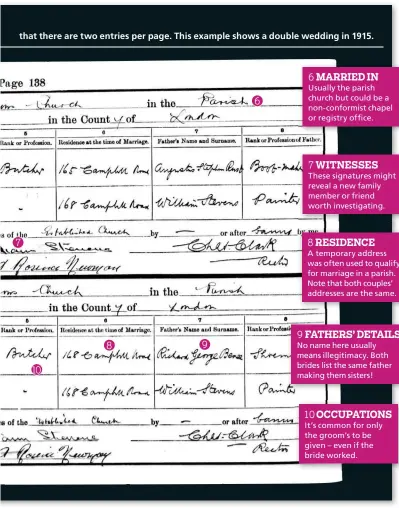 that there are two entries per page. This example shows a double wedding in 1915.
Page 138
Church in the Parish 6
in the County of London
5 6 7 8
Rank or Profession. Residence at the time of Marriage. Father's Name and Surname. Rank or Profession of Father.
Butcher 165 Campbell Road Augustus Stephen
- 168 Campbell Road William Stevens Painter
s of the Established Church by — or after banns by me,
7 Stevens Chas. Clark
Rosina Rector
Church in the Parish
in the County of London
5 6 7 8
Rank or Profession. Residence at the time of Marriage. Father's Name and Surname. Rank or Profession
8 9
Butcher 168 Campbell Road Richard George
10
- 168 Campbell Road William Stevens Painter
s of the Established Church by — or after banns
Stevens Chas. Clark
Rosina Rector
6 MARRIED IN
Usually the parish
church but could be a
non-conformist chapel
or registry office.
7 WITNESSES
These signatures might
reveal a new family
member or friend
worth investigating.
8 RESIDENCE
A temporary address
was often used to qualify
for marriage in a parish.
Note that both couples'
addresses are the same.
9 FATHERS' DETAILS
No name here usually
means illegitimacy. Both
brides list the same father
making them sisters!
10 OCCUPATIONS
It's common for only
the groom's to be
given – even if the
bride worked.